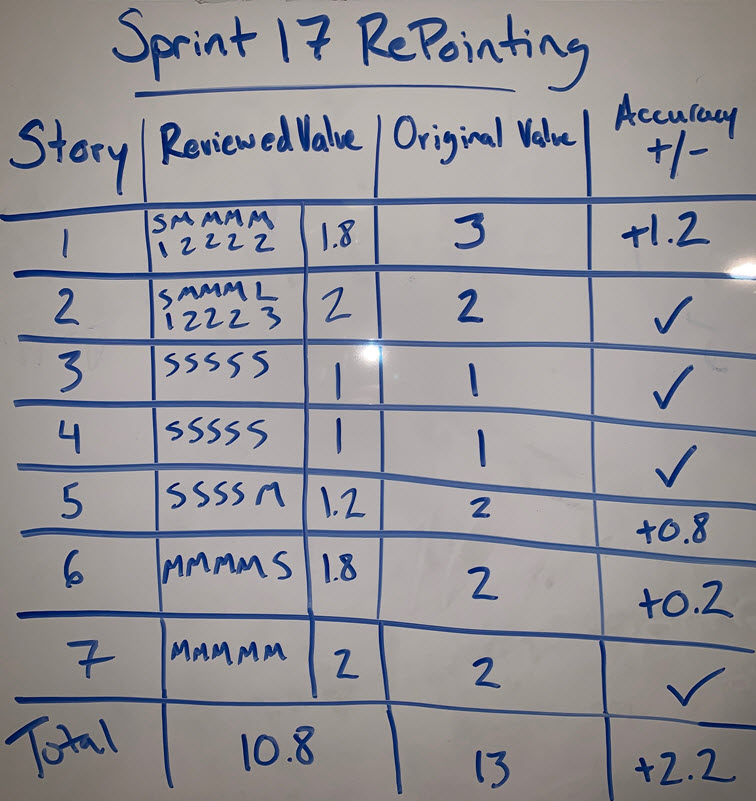 Sprint 17 RePointing
Story | Reviewed Value | Original Value | Accuracy +/-
1 | SMMMM 1.8 | 3 | +1.2
12222
2 | SMMML 2 | 2 | ✓
12223
3 | SSSSS 1 | 1 | ✓
4 | SSSSS 1 | 1 | ✓
5 | SSSSM 1.2 | 2 | +0.8
6 | MMMMS 1.8 | 2 | +0.2
7 | MMMMM 2 | 2 | ✓
Total | 10.8 | 13 | +2.2